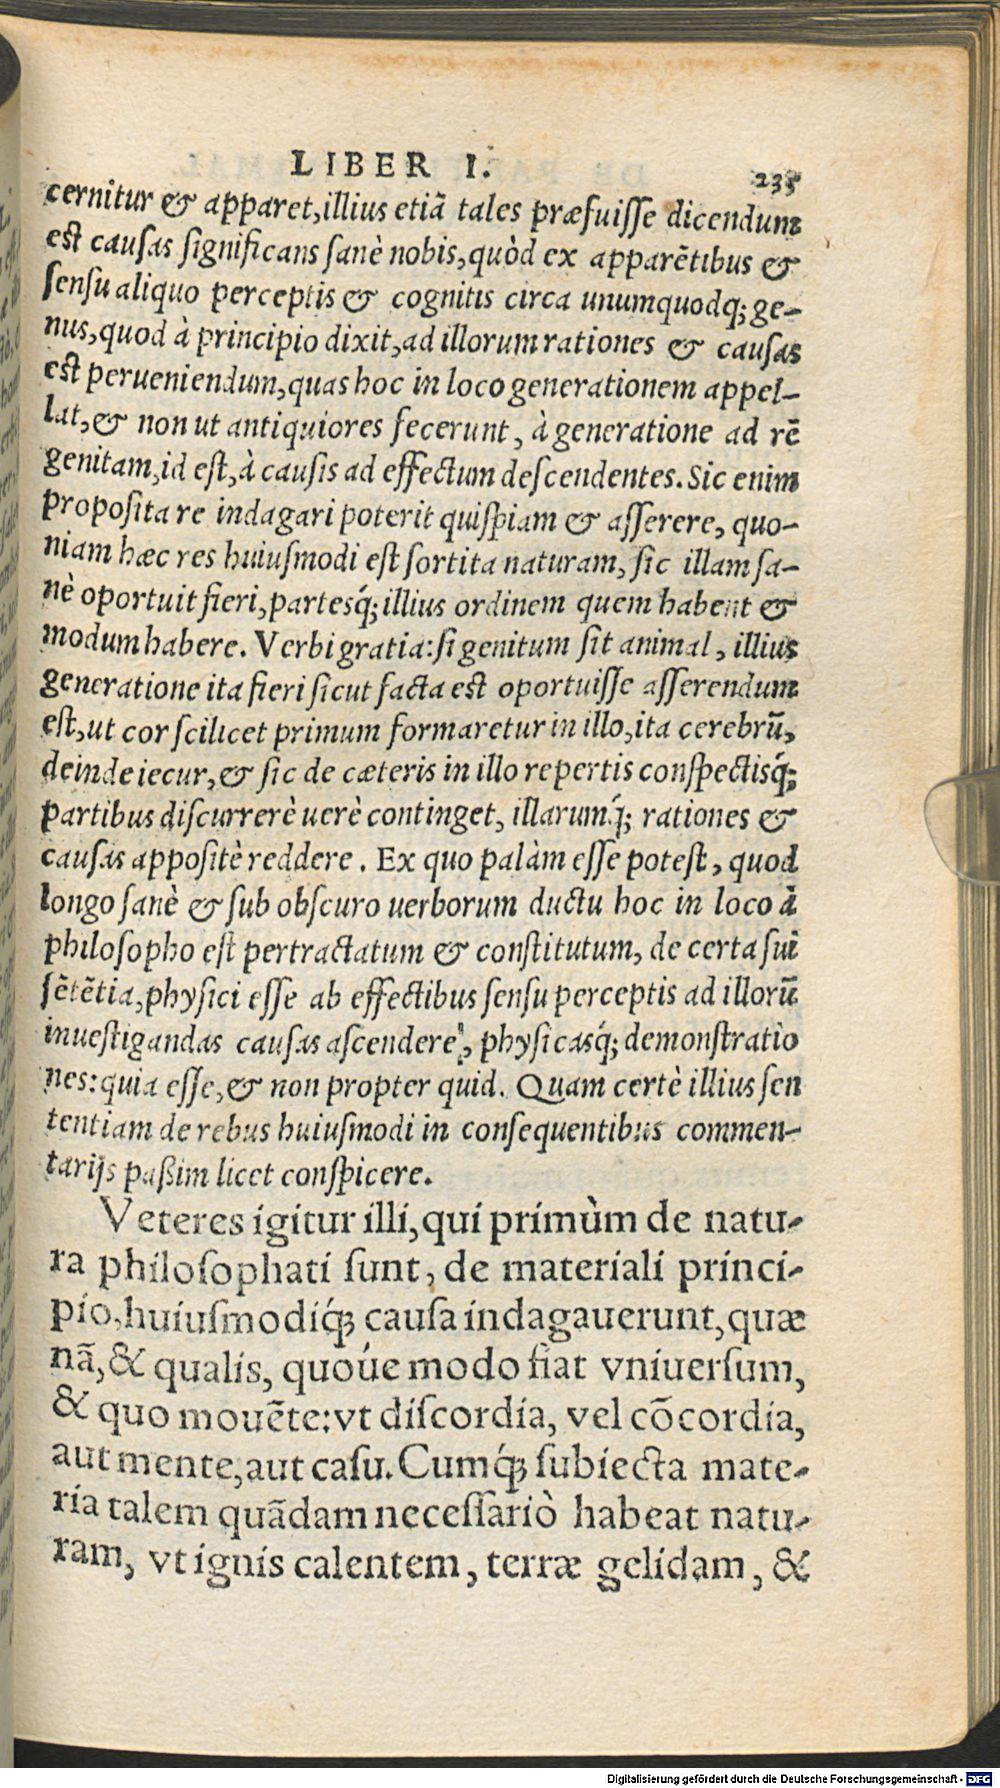 LIBER I. 235
cernitur & apparet, illius etiā tales præfuisse dicendum
est causas significans sanè nobis, quòd ex apparētibus &
sensu aliquo perceptis & cognitis circa unumquodq; ge-
nus, quod à principio dixit, ad illorum rationes & causas
est perueniendum, quas hoc in loco generationem appel-
lat, & non ut antiquiores fecerunt, à generatione ad rē
genitam, id est, à causis ad effectum descendentes. Sic enim
proposita re indagari poterit quispiam & asserere, quo-
niam hæc res huiusmodi est sortita naturam, sic illam sa-
nè oportuit fieri, partesq́; illius ordinem quem habent &
modum habere. Verbi gratia: si genitum sit animal, illius
generatione ita fieri sicut facta est oportuisse asserendum
est, ut cor scilicet primum formaretur in illo, ita cerebrū,
deinde iecur, & sic de cæteris in illo repertis conspectisq́;
partibus discurrerè uerè continget, illarumq́; rationes &
causas appositè reddere. Ex quo palàm esse potest, quod
longo sanè & sub obscuro uerborum ductu hoc in loco à
philosopho est pertractatum & constitutum, de certa sui
sētētia, physici esse ab effectibus sensu perceptis ad illorū
inuestigandas causas ascendere, physicasq́; demonstratio
nes: quia esse, & non propter quid. Quam certè illius sen
tentiam de rebus huiusmodi in consequentibus commen-
tarijs paßim licet conspicere.
Veteres igitur illi, qui primùm de natu-
ra philosophati sunt, de materiali princi-
pio, huiusmodiq́; causa indagauerunt, quæ
nā, & qualis, quoúe modo fiat vniuersum,
& quo mouēte: vt discordia, vel cōcordia,
aut mente, aut casu. Cumq́; subiecta mate-
ria talem quādam necessariò habeat natu-
ram, vt ignis calentem, terræ gelidam, &
Digitalisierung gefördert durch die Deutsche Forschungsgemeinschaft - DFG